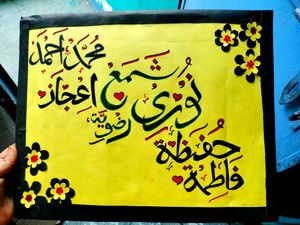 محمد احمد
شمع
اعجاز
نوری
رضویہ
حفیظہ
فاطمہ